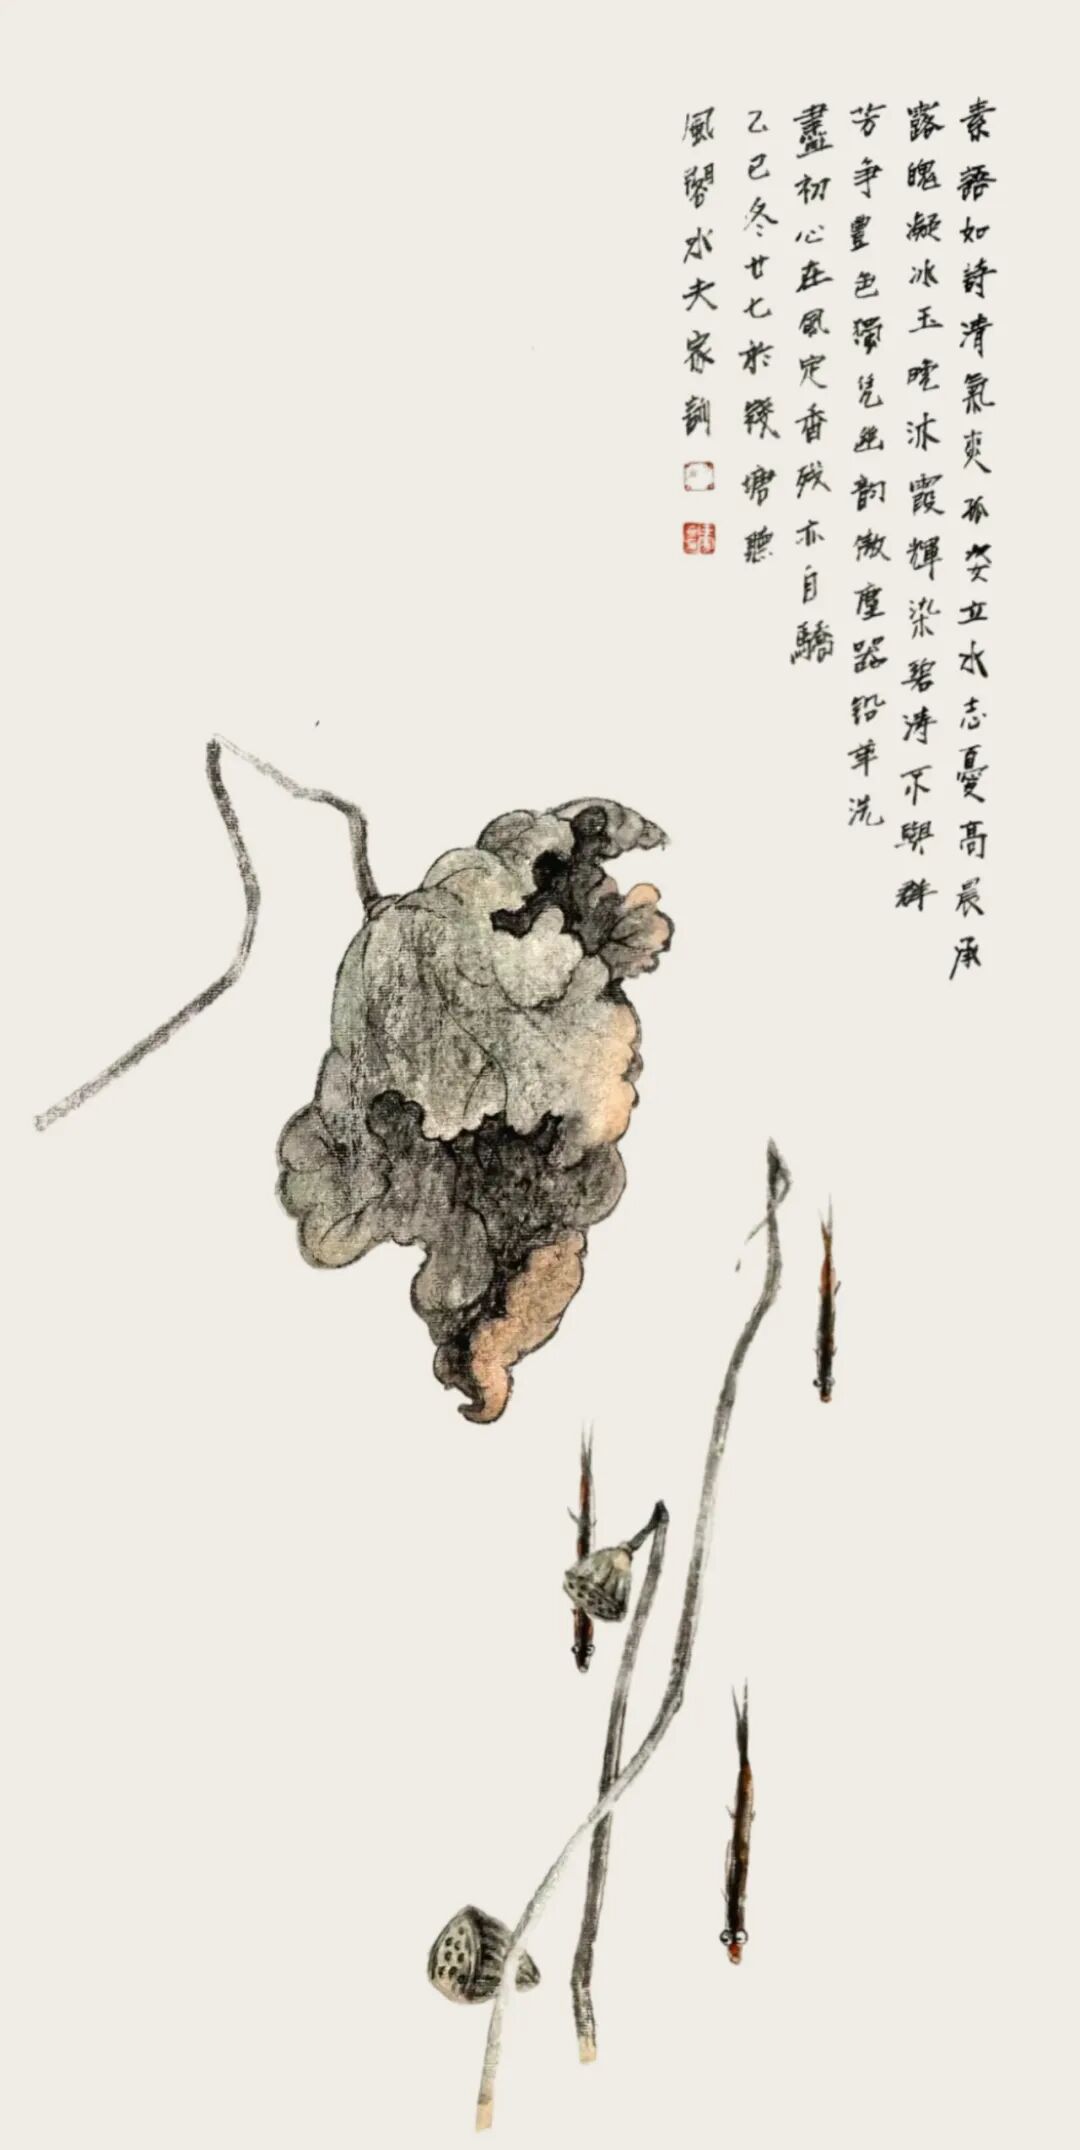 素語如詩清氣爽孤姿立水志憂高晨承
露魄凝冰玉晚沐霞輝染碧涛不與群
芳争豐色獨凭幽韵傲塵嚣铅華洗
盡初心在風定香残亦自驕
乙巳冬廿七於錢塘聽
風閣水夫家訓